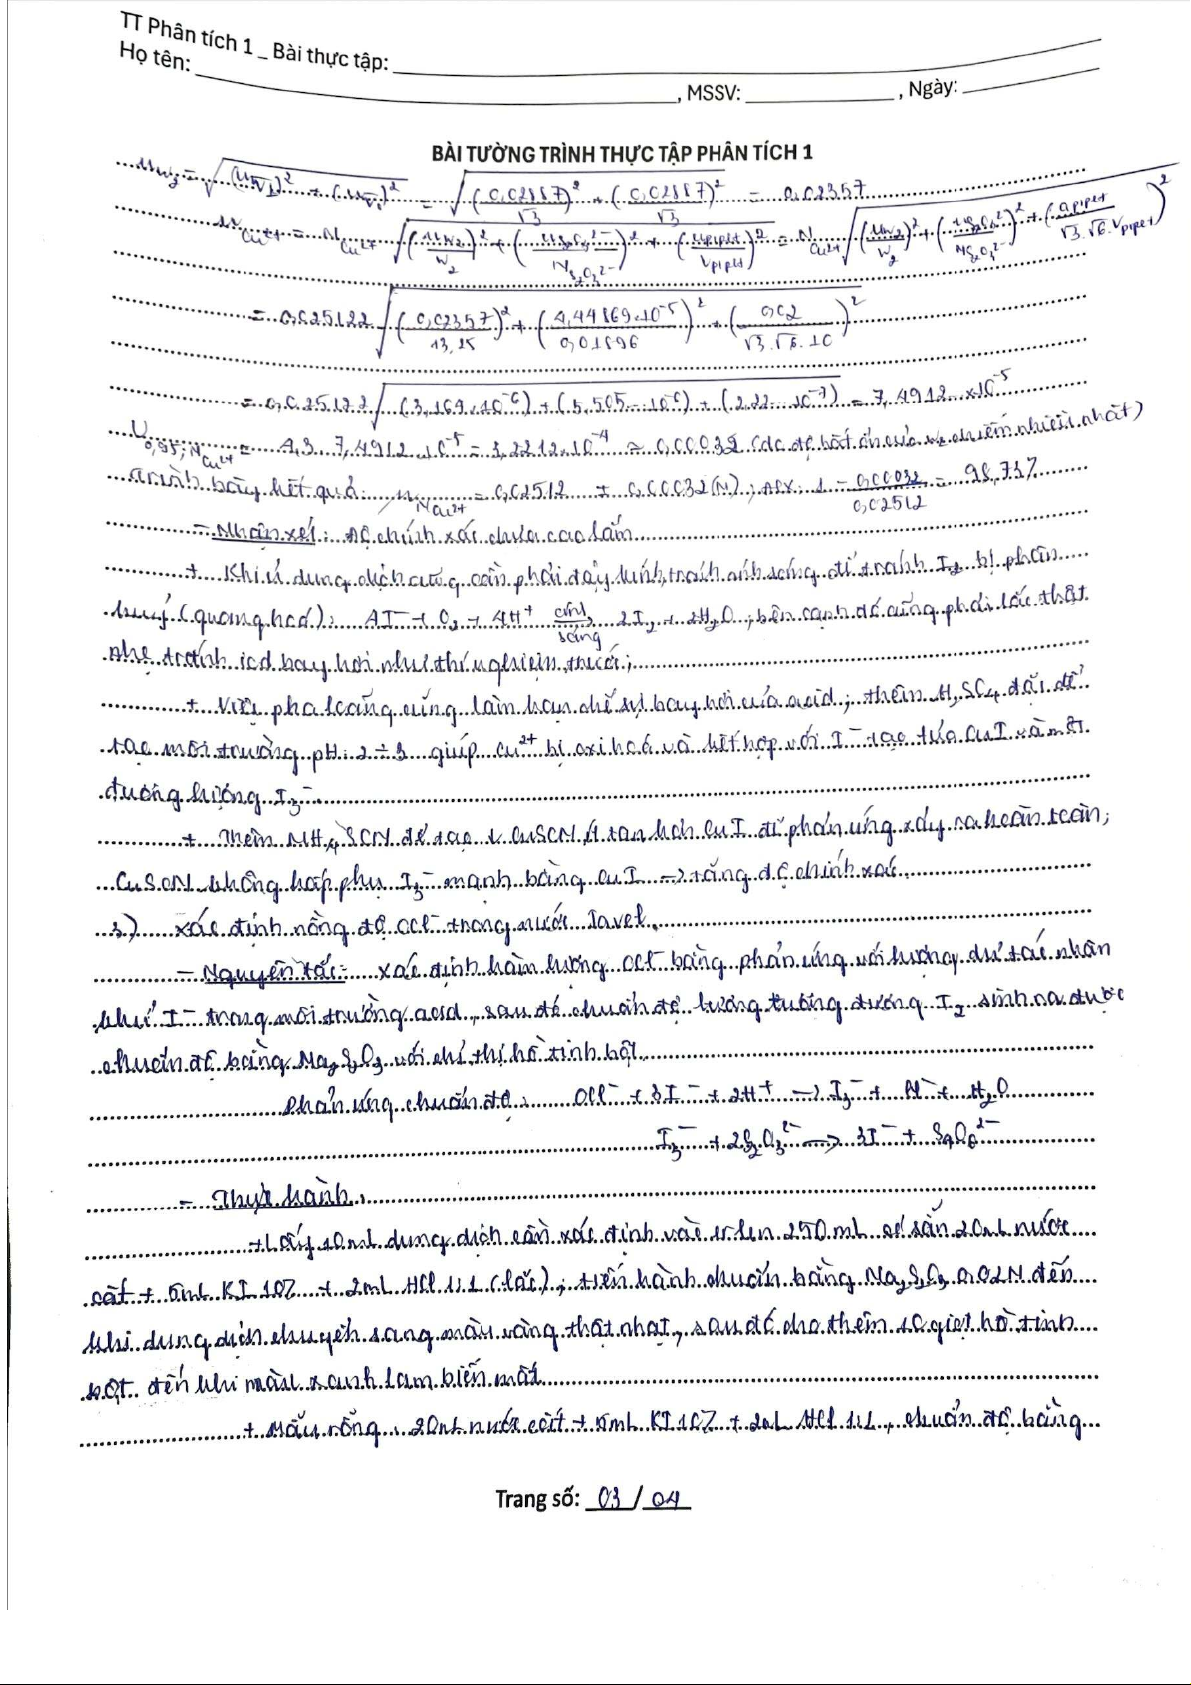 TT Phân tích 1 _ Bài thực tập:
Họ tên: , MSSV: , Ngày:
BÀI TƯỜNG TRÌNH THỰC TẬP PHÂN TÍCH 1
= √((0,02887/√3)² + (0,02887/√3)²) = 0,02357
= 0,025122 √((0,02357/13,25)² + (4,44869.10⁻⁵/0,01896)² + (0,02/√3.√6.10)²)
= 0,025122 √((3,169.10⁻⁶) + (5,505...10⁻⁶) + (2,22...10⁻⁷)) = 7,4912 x10⁻⁵
U0,95; N Cu²⁺ = 4,3 . 7,4912.10⁻⁵ = 3,2212.10⁻⁴ ≈ 0,00032
Trình bày kết quả: = 0,02512 ± 0,00032 (N); ĐCX: 1 - 0,00032/0,02512 = 98,73%
- Nhận xét: Độ chính xác chưa cao lắm
+ Khi sử dụng dịch cũng cần phải đậy kính, tránh ánh sáng để tránh I₂ bị phân
huỷ (quang hoá): 4I⁻ + O₂ + 4H⁺ ánh sáng 2I₂ + 2H₂O, bên cạnh đó cũng phải lắc thật
nhẹ tránh iod bay hơi như thí nghiệm trước;
+ Việc pha loãng cũng làm hạn chế sự bay hơi của acid; thêm H₂SO₄ đặc để
tạo môi trường pH: 2 ÷ 3 giúp Cu²⁺ bị oxi hoá và kết hợp với I⁻ tạo tủa CuI và một
đương lượng I₃⁻.
+ Thêm NH₄SCN để tạo ↓ CuSCN ít tan hơn CuI để phản ứng xảy ra hoàn toàn;
CuSCN không hấp phụ I₃⁻ mạnh bằng CuI → tăng độ chính xác.
3) Xác định nồng độ OCl⁻ trong nước Javel.
- Nguyên tắc: xác định hàm lượng OCl⁻ bằng phản ứng với lượng dư tác nhân
khử I⁻ trong môi trường acid, sau đó chuẩn độ lượng tương đương I₂ sinh ra được
chuẩn độ bằng Na₂S₂O₃ với chỉ thị hồ tinh bột.
Phản ứng chuẩn độ: OCl⁻ + 3I⁻ + 2H⁺ → I₃⁻ + Cl⁻ + H₂O
I₃⁻ + 2S₂O₃²⁻ → 3I⁻ + S₄O₆²⁻
- Thực hành:
+ Lấy 10mL dung dịch cần xác định vào erlen 250mL có sẵn 20mL nước
cất + 5mL KI 10% + 2mL HCl 1:1 (lắc); tiến hành chuẩn bằng Na₂S₂O₃ 0,02N đến
khi dung dịch chuyển sang màu vàng thật nhạt, sau đó cho thêm 10 giọt hồ tinh
bột đến khi màu xanh lam biến mất
+ Mẫu rỗng: 20mL nước cất + 5mL KI 10% + 2mL HCl 1:1, chuẩn độ bằng
Trang số: 03 / 04